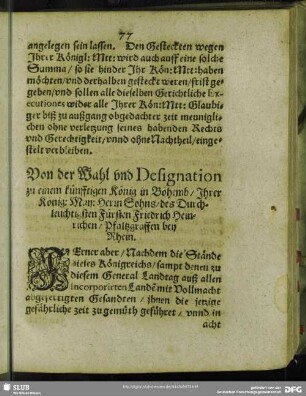 77
angelegen sein lassen. Den Gesteckten wegen
Ihrer Königl: Mtt: wird auch auff eine solche
Summa / so sie hinder Ihr Kön: Mtt: haben
möchten / vnd derhalben gesteckt weren / frist ge
geben / vnd sollen alle dieselben Gerichtliche Ex-
ecutiones wider alle Ihrer Kön: Mtt: Glaubi-
ger biß zu außgang obgedachter zeit meunigli-
chen ohne verletzung seines habenden Rechts
vnd Gerechtigkeit / vnnd ohne Nachtheil / einge-
stelt verbleiben.
Von der Wahl vnd Designation
zu einem künfftigen König in Bohemb / Ihrer
König: May: Herrn Sohns / des Durch-
leuchtigsten Fürsten Friedrich Hein-
richen / Pfaltzgraffen bey
Rhein.
FErner aber / Nachdem die Stände
dieses Königreichs / sampt denen zu
diesem General Landtag auß allen
incorporirten Landen mit Vollmacht
abgefertigten Gesandten / ihnen die jetzige
gefährliche zeit zu gemüth geführet / vnnd in
acht
SLUB
Wir führen Wissen.
gefördert von der
Deutschen Forschungsgemeinschaft